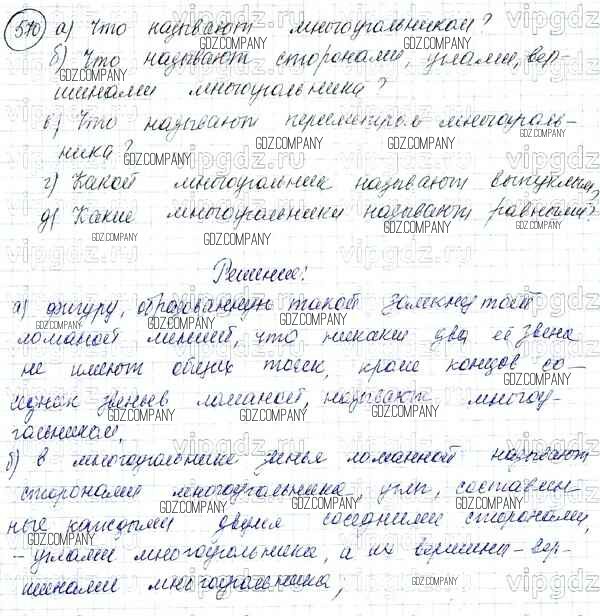 570 а) Что называют многоугольником?
б) Что называют сторонами, углами, вер-
шинами многоугольника?
в) Что называют периметром многоуголь-
ника?
г) Какой многоугольник называют выпуклым?
д) Какие многоугольники называют равными?
Решение!
а) фигуру, образованную такой замкнутой
ломаной линией, что никакие два её звена
не имеют общих точек, кроме концов со-
седних звеньев ломаной, называют многоу-
гольником.
б) в многоугольнике звенья ломанной называют
сторонами многоугольника, углы, составлен-
ные каждыми двумя соседними сторонами,
- углами многоугольника, а их вершины - вер-
шинами многоугольника;